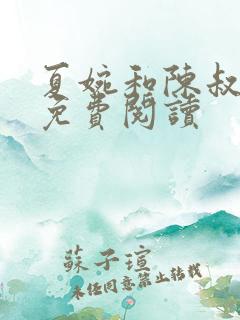 夏婉和陳叔
免費閱讀
蘇子瑄
未经同意禁止转载